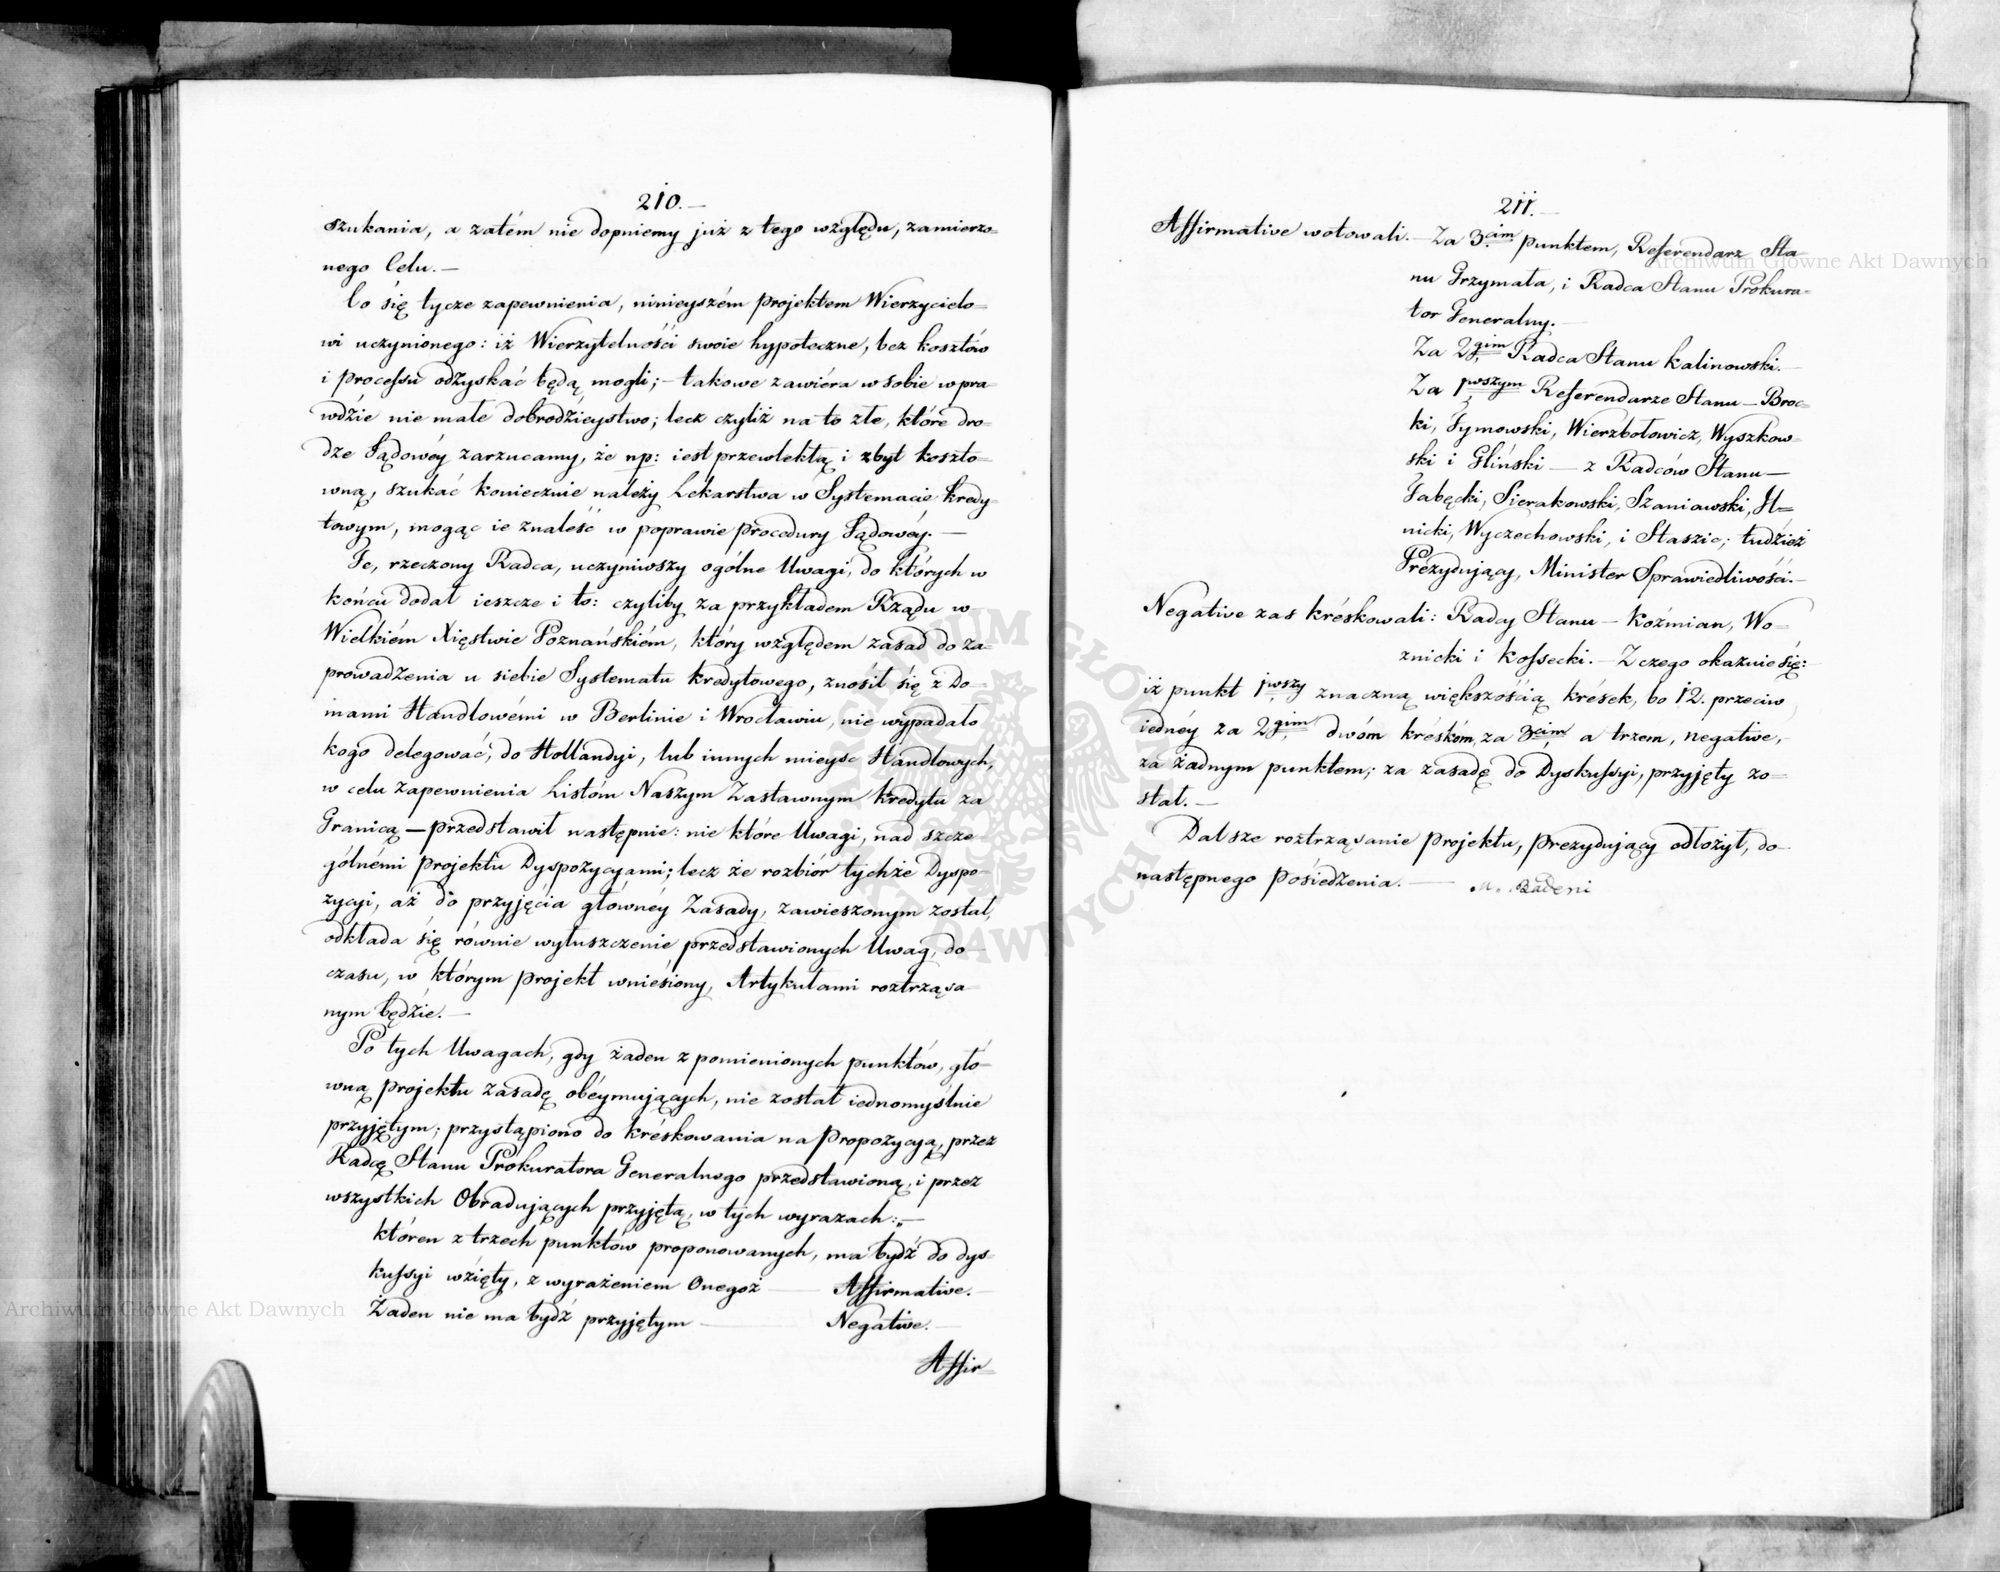 210.—
szukania, a zatém nie dopniemy już z tego względu, zamierzo=
nego Celu.—
Co się tycze zapewnienia, ninieyszém projektem Wierzycielo=
wi uczynionego: iż Wierzytelności swoie hypoteczne, bez kosztów
i processu odzyskać będą mogli;— takowe zawiéra w sobie wpra
wdzie nie małe dobrodzieystwo; lecz czyliż na to złe, które dro=
dze Sądowéy zarzucamy, że np: iest przewlekłą i zbyt koszto=
wną, szukać koniecznie należy Lekarstwa w Systemacie kredy
towym, mogąc ie znaleść w poprawie procedury Sądowéy.—
Te, rzeczony Radca, uczyniwszy ogólne Uwagi, do których w
końcu dodał ieszcze i to: czyliby za przykładem Rządu w
Wielkiém Xięstwie Poznańskiém, który względem zasad do za=
prowadzenia u siebie Systematu kredytowego, znosił się z Do=
mami Handlowémi w Berlinie i Wrocławiu, nie wypadało
kogo delegować, do Hollandyi, lub innych mieysc Handlowych,
w celu zapewnienia Listóm Naszym Zastawnym kredytu za
Granicą — przedstawił następnie: nie które Uwagi, nad szcze
gólnémi projektu Dyspozycyami; lecz że rozbiór tychże Dyspo=
zycyi, aż do przyjęcia głównéy Zasady, zawieszonym został,
odkłada się równie wyłuszczenie przedstawionych Uwag, do
czasu, w którym projekt wniesiony, Artykułami roztrząsa=
nym będzie.—
Po tych Uwagach, gdy żaden z pomienionych punktów, głó=
wną projektu zasadę obéymujących, nie został iednomyślnie
przyjętym; przystąpiono do kréskowania na propozycyą, przez
Radcę Stanu Prokuratora Generalnego przedstawioną, i przez
wszystkich Obradujących przyjętą, w tych wyrazach:„—
któren z trzech punktów proponowanych, ma bydź do dys=
kussyi wzięty, z wyrażeniem Onegoż — Affirmative.—
Żaden nie ma bydź przyjętym — Negative.—
Affir=
211.—
Affirmative wotowali.— Za 3cim punktem, Referendarz Sta=
nu Grzymała, i Radca Stanu Prokura=
tor Generalny.—
Za 2gim Radca Stanu Kalinowski.—
Za 1wszym Referendarze Stanu — Broc=
ki, Tymowski, Wierzbołowicz, Wyszkow=
ski i Gliński — z Radców Stanu —
Jabęcki, Sierakowski, Szaniawski, H=
nicki, Wyczechowski, i Staszic; tudzież
Prezydujący, Minister Sprawiedliwości.—
Negative zas kréskowali: Radcy Stanu — Koźmian, Wo=
znicki i Kossecki.— Z czego okazuie się:
iż punkt 1wszy znaczną większością krések, bo 12. przeciw
iednéy za 2gim, dwóm kréskóm, za 3cim, a trzem, negative,
za żadnym punktem; za zasadę do Dyskussyi, przyjęty zo=
stał.—
Dalsze roztrząsanie projektu, prezydujący odłożył, do
następnego posiedzenia.— M. Badeni
Archiwum Główne Akt Dawnych
Archiwum Główne Akt Dawnych
ARCHIWUM GŁÓWNE AKT DAWNYCH